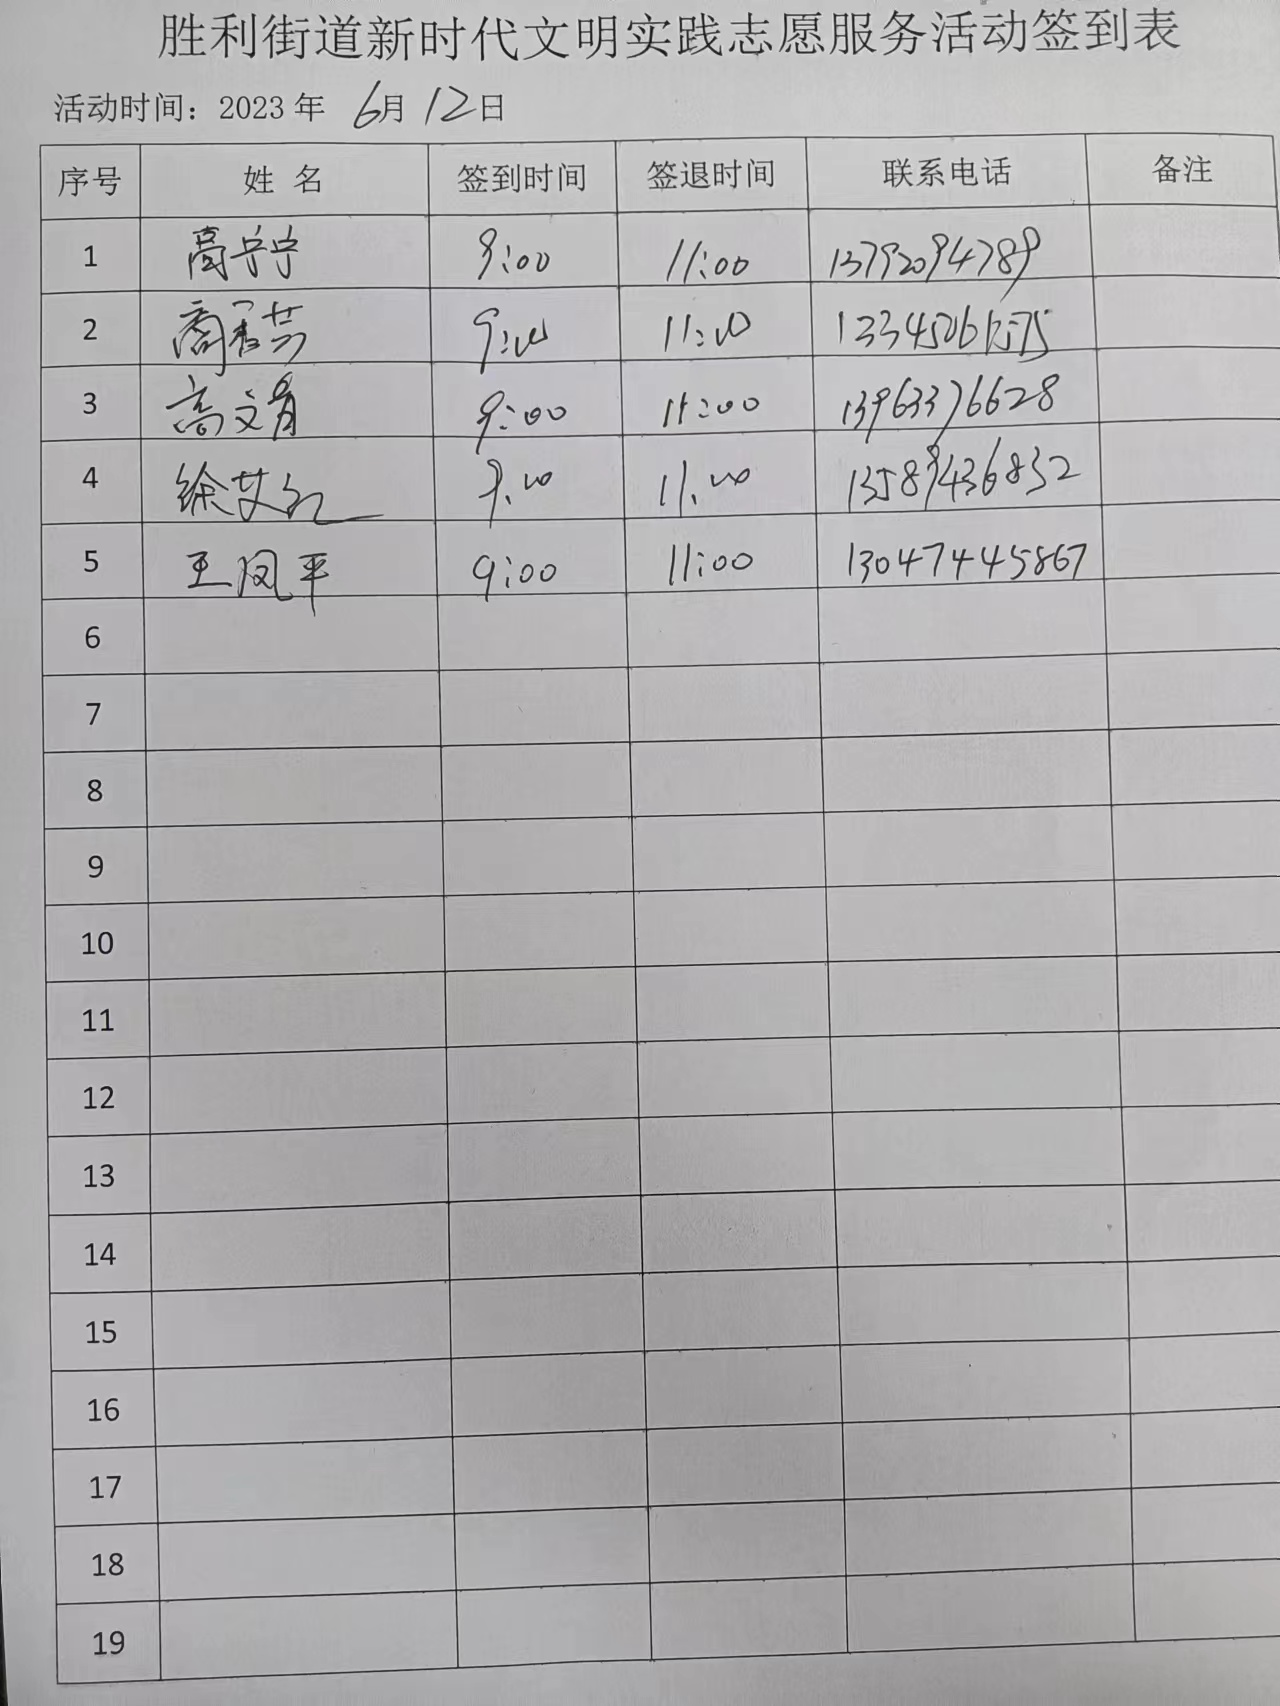 胜利街道新时代文明实践志愿服务活动签到表
活动时间：2023 年 6月12日
序号 姓 名 签到时间 签退时间 联系电话 备注
1 高宁宁 9:00 11:00 13792094789
2 9:00 11:00
3 高文青 9:00 11:00 13963376628
4 徐艾红 9:00 11:00 13589436832
5 王凤平 9:00 11:00 13047445867
6
7
8
9
10
11
12
13
14
15
16
17
18
19